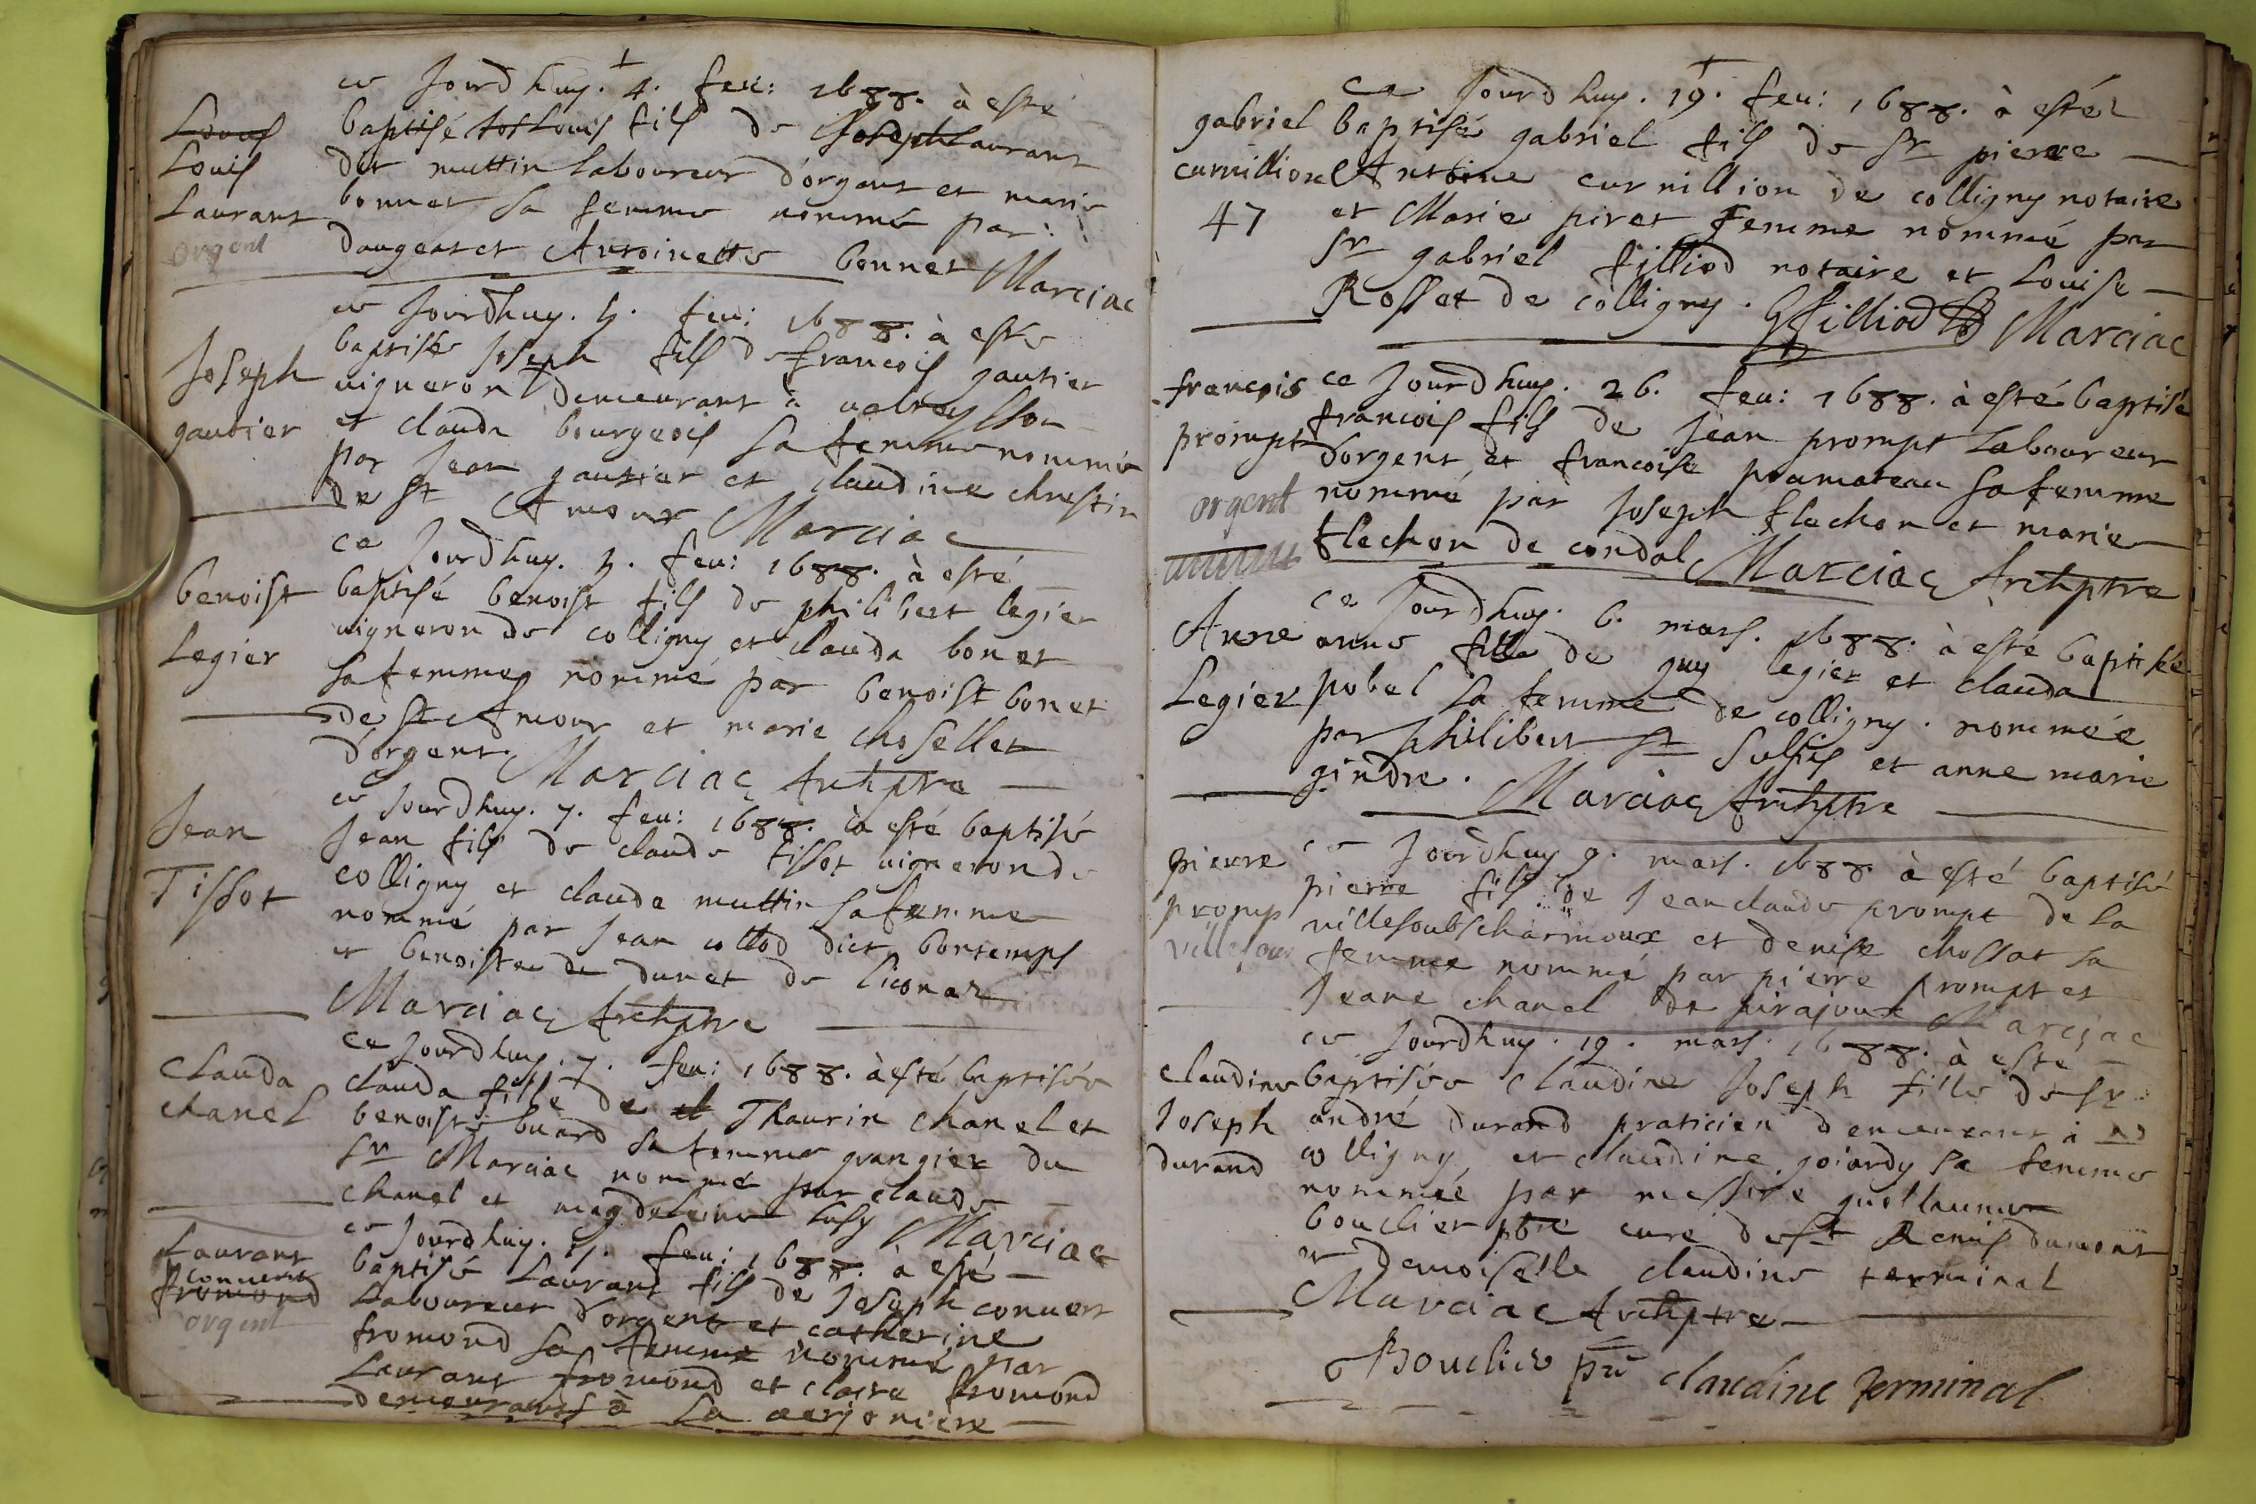 ce Jourdhuy. 4. feu: 1688. à esté
Louis
baptisé Louis fils de Joseph Laurant
Louis
dit muttin laboureur d'orgent et marie
Laurant
bonnet sa femme nommé par
orgent
et Antoinette bonnet Marciac
ce Jourdhuy. 5. feu: 1688. à esté
baptisé Joseph fils de francois gautier
Joseph
uigneron demeurant à
gautier
et clauda bourgeois sa femme nommé
par Jean gautier et claudine chrestin
de st Amour Marciac
ce Jourdhuy. 5. feu: 1688. à esté
benoist
baptisé benoist fils de philibert legier
Legier
uigneron de colligny et clauda bonet
sa femme nommé par benoist bonet
de st Amour et marie chosellet
d'orgent. Marciac Archiptre
ce Jourdhuy. 7. feu: 1688. à esté baptisé
Jean
Jean fils de claude tissot uigneron de
Tissot
colligny et clauda muttin sa femme
nommé par Jean collod dict bontemps
et benoiste de dunet de liconaz
Marciac Archiptre
ce Jourdhuy. 7. feu: 1688. à esté baptisée
Clauda
clauda fille de Thaurin chanel et
chanel
benoiste buard sa femme grangier du
sr Marciac nommé par claude
chanel et magdeleine Marciac
ce Jourdhuy. feu: 1688. à esté
Laurant
baptisé Laurant fils de Joseph conuert
conuert
fromond
Laboureur d'orgent et catherine
orgent
fromond sa femme nommé par
Laurant fromond et claira fromond
demeurants à La
ce Jourdhuy. 19. feu: 1688. à esté
gabriel
baptisé gabriel fils de sr pierre
curnillion
Antoine curnillion de colligny notaire
47
et Marie piret femme nommé par
sr gabriel filliod notaire et Louise
Rosset de colligny. Gfilliod Marciac
francois
ce Jourdhuy. 26. feu: 1688. à esté baptisé
prompt
francois fils de Jean prompt Laboureur
d'orgent et francoise pramateau sa femme
orgent
nommé par Joseph flechon et marie
flechon de condal Marciac Archiptre
ce Jourdhuy. 6. mars. 1688. à esté baptisée
Anne
anne fille de guy legier et clauda
Legier
pobel sa femme de colligny. nommée
par philibert st sulpis et anne marie
gindre. Marciac Archiptre
pierre
ce Jourdhuy 9. mars. 1688. à esté baptisé
promp
pierre fils de Jeanclaude prompt de la
villesous
villesoubscharmoux et denise chossat sa
femme nommé par pierre prompt et
Jeane chanel de pirajoux Marciac
ce Jourdhuy. 19. mars. 1688. à esté
claudine
baptisée claudine Joseph fille de sr
Joseph
andré durand praticien demeurant à
durand
colligny et claudine goiardy sa femme
nommée par messire guillaume
bouclier ptre curé de st Remis dumont
et demoiselle claudine terminal
Marciac Archiptre
Bouclier claudine Terminal